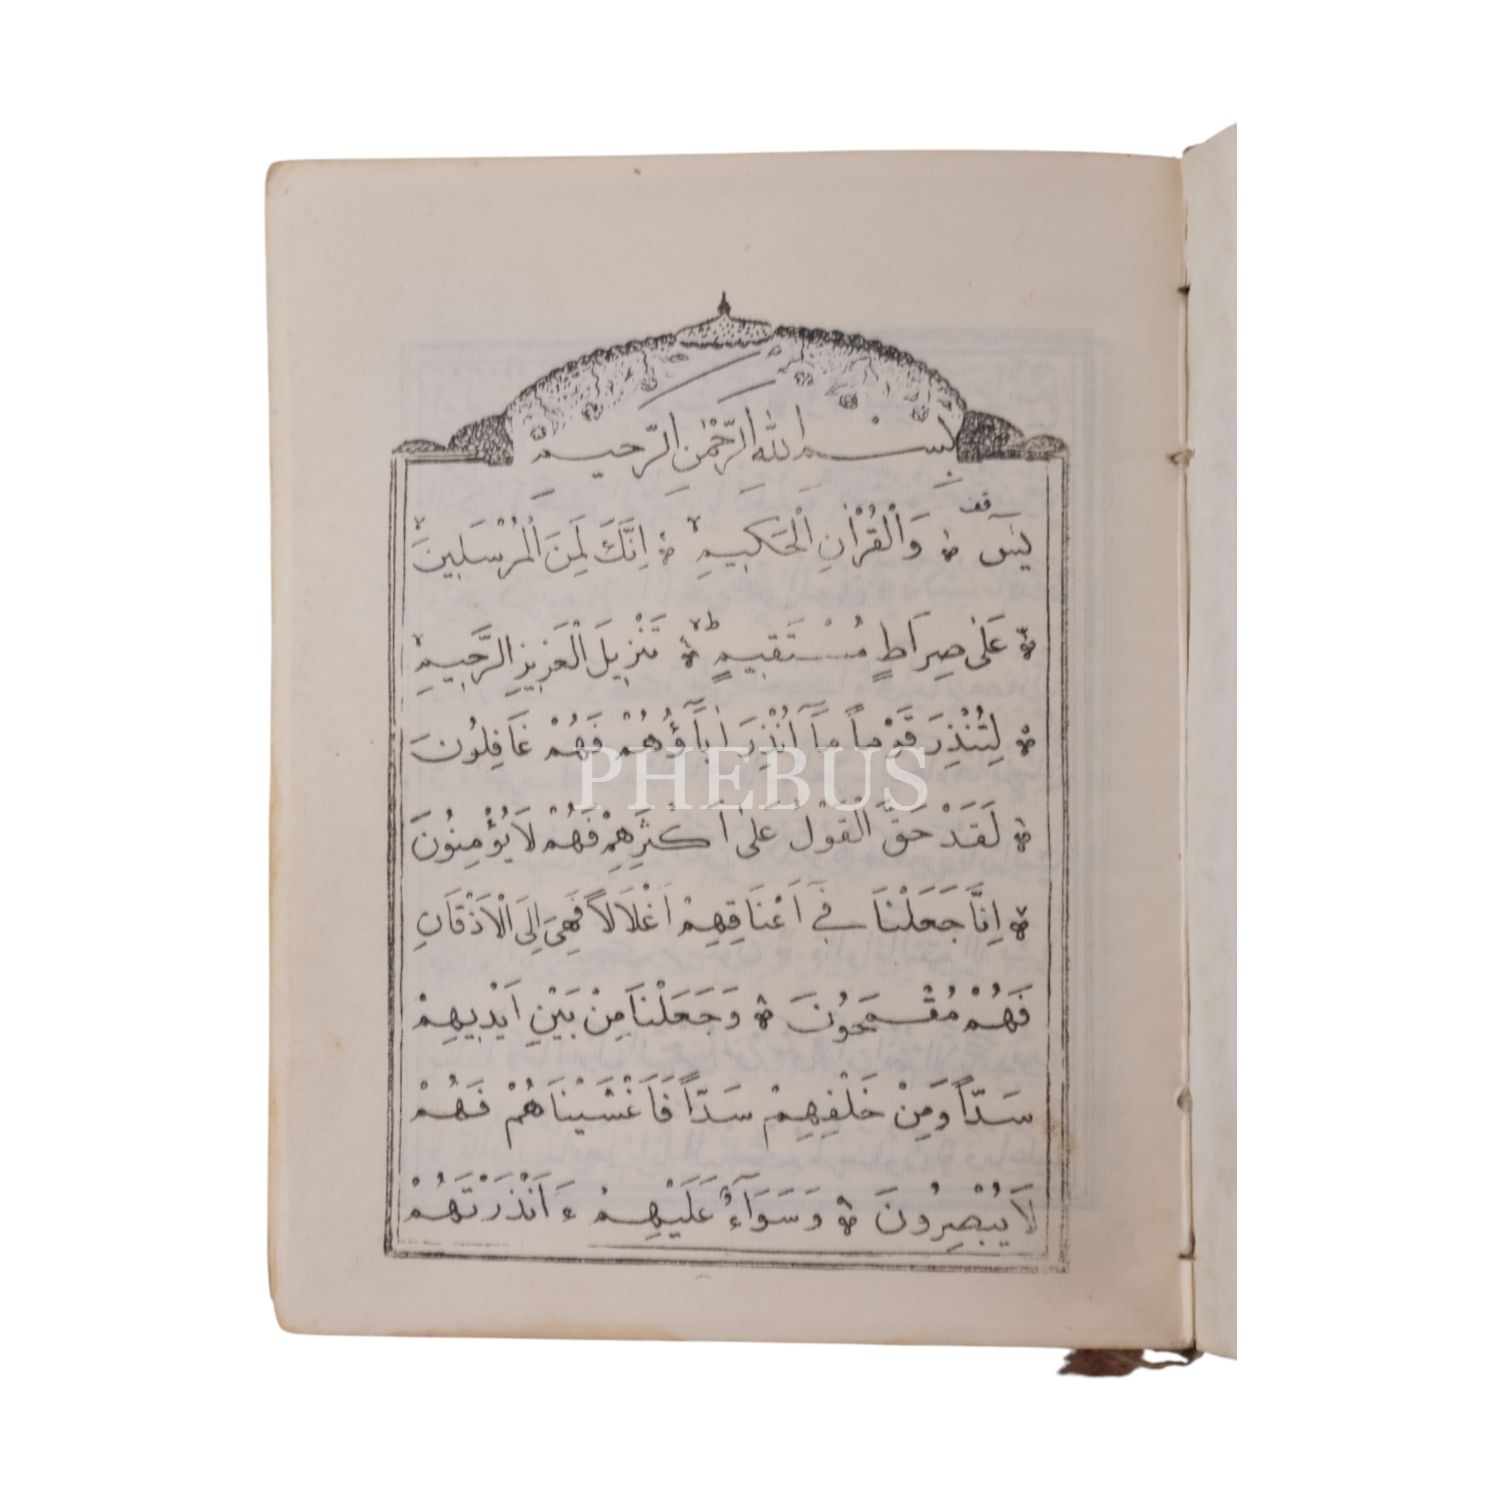 بِسْمِ اللّٰهِ الرَّحْمٰنِ الرَّحِيمِ
قف
يٰسٓ ۞ وَالْقُرْاٰنِ الْحَكِيمِۙ ۞ اِنَّكَ لَمِنَ الْمُرْسَلِينَۙ
۞ عَلٰى صِرَاطٍ مُسْتَقِيمٍۜ ۞ تَنْزِيلَ الْعَزِيزِ الرَّحِيمِۙ
۞ لِتُنْذِرَ قَوْماً مَٓا اُنْذِرَ اٰبَٓاؤُهُمْ فَهُمْ غَافِلُونَ
PHEBUS
۞ لَقَدْ حَقَّ الْقَوْلُ عَلٰٓى اَكْثَرِهِمْ فَهُمْ لَا يُؤْمِنُونَ
۞ اِنَّا جَعَلْنَا فِٓي اَعْنَاقِهِمْ اَغْلَالاً فَهِيَ اِلَى الْاَذْقَانِ
فَهُمْ مُقْمَحُونَ ۞ وَجَعَلْنَا مِنْ بَيْنِ اَيْدِيهِمْ
سَدّاً وَمِنْ خَلْفِهِمْ سَدّاً فَاَغْشَيْنَاهُمْ فَهُمْ
لَا يُبْصِرُونَ ۞ وَسَوَٓاءٌ عَلَيْهِمْ ءَاَنْذَرْتَهُمْ